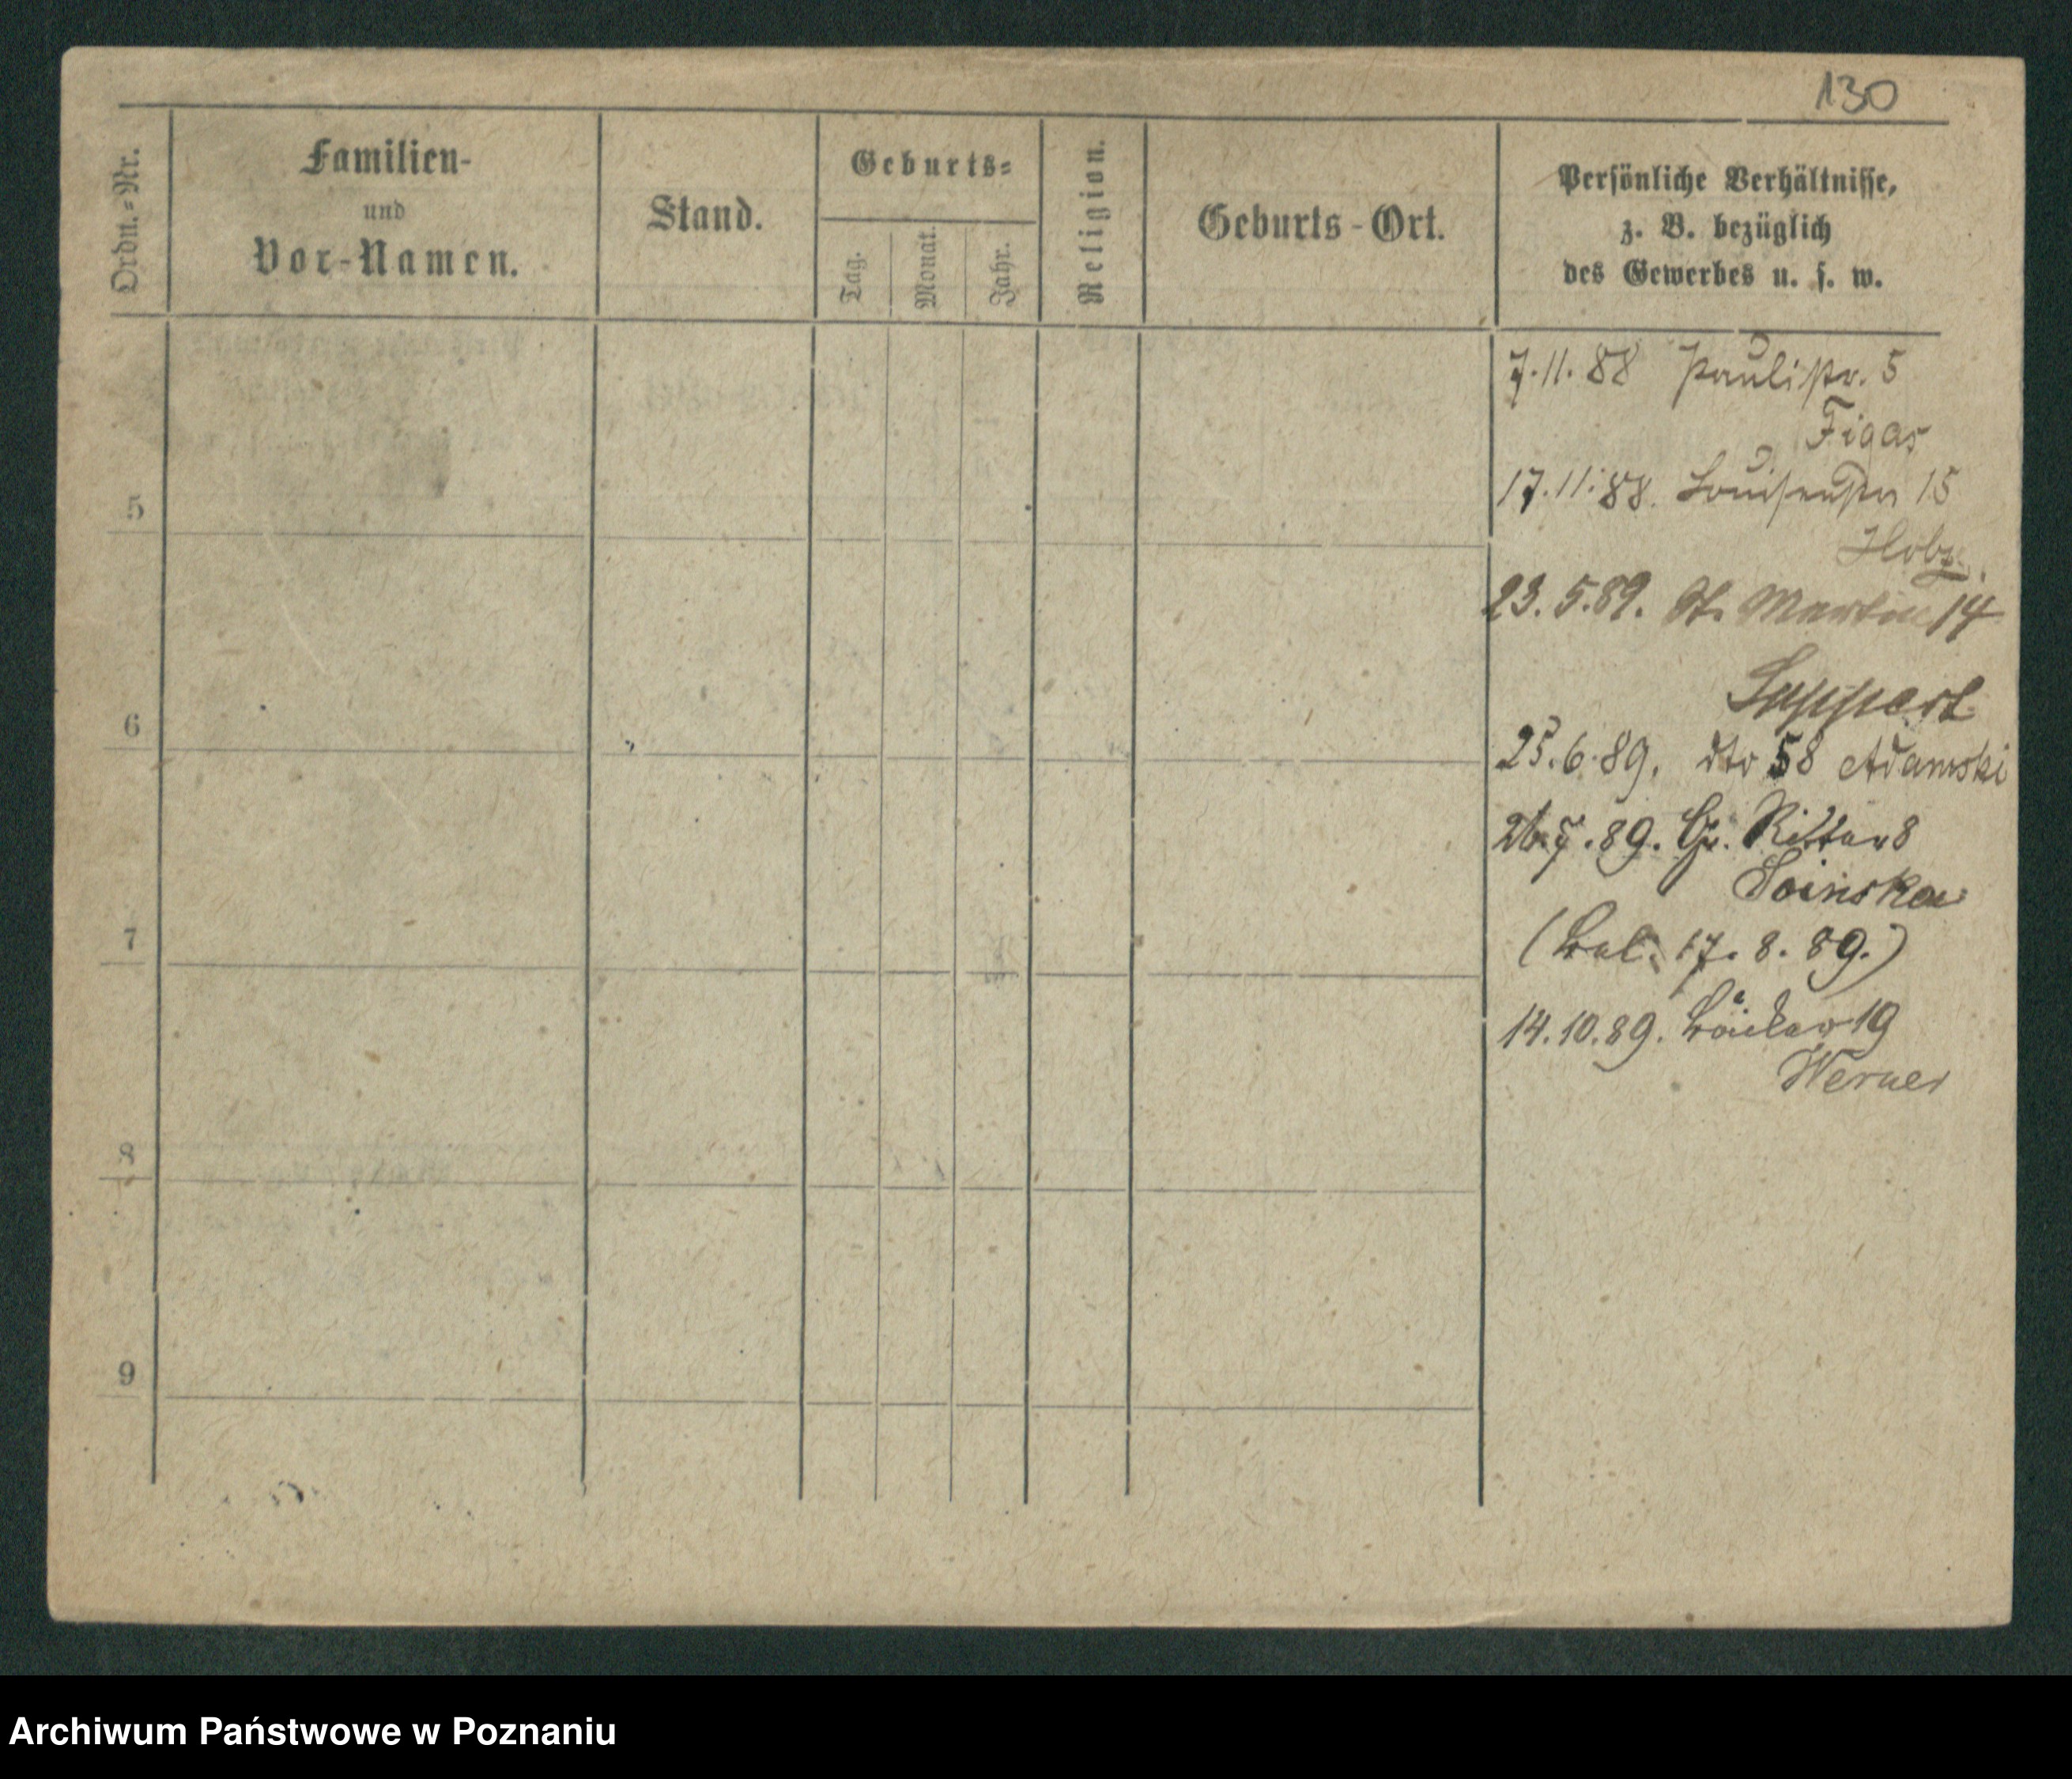 130
Ordn.-Nr.
Familien-
und
Vor-Namen.
Stand.
Geburts-
Tag.
Monat.
Jahr.
Religion.
Geburts-Ort.
Persönliche Verhältnisse,
z. B. bezüglich
des Gewerbes u. s. w.
7.11.88 Paulistr. 5
Figas
17.11.88. Louisenstr 15
23.5.89. St. Martin 14
Suppert
25.6.89. dto 58 Adamski
26.7.89. Gr. Ritter 8
Soinska
17.8.89.)
14.10.89. Bäcker 19
Werner
5
6
7
8
9
Archiwum Państwowe w Poznaniu